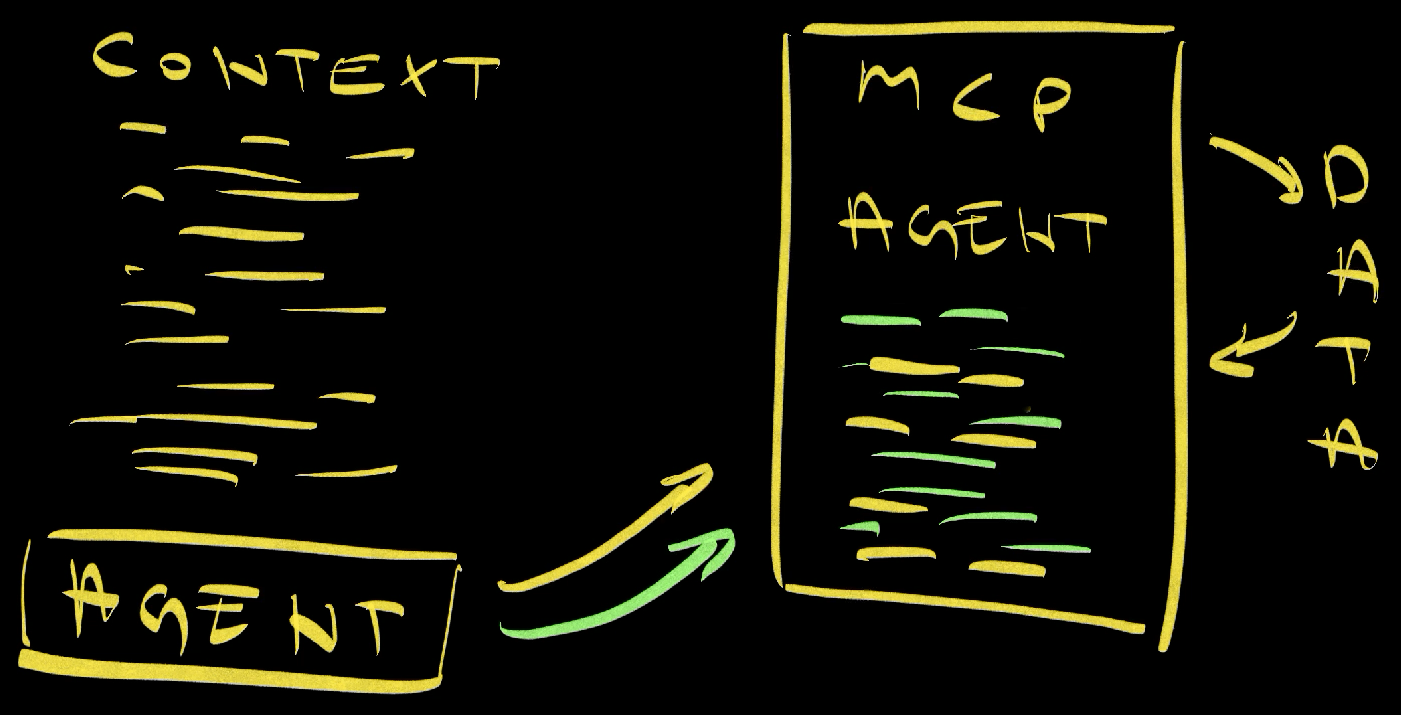 CONTEXT
AGENT
MCP
AGENT
DATA